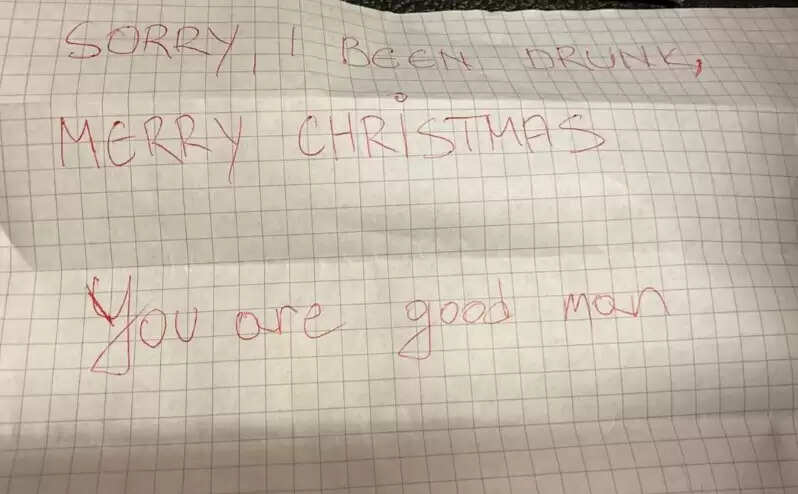 SORRY, I BEEN DRUNK,
MERRY CHRISTMAS
You are good man